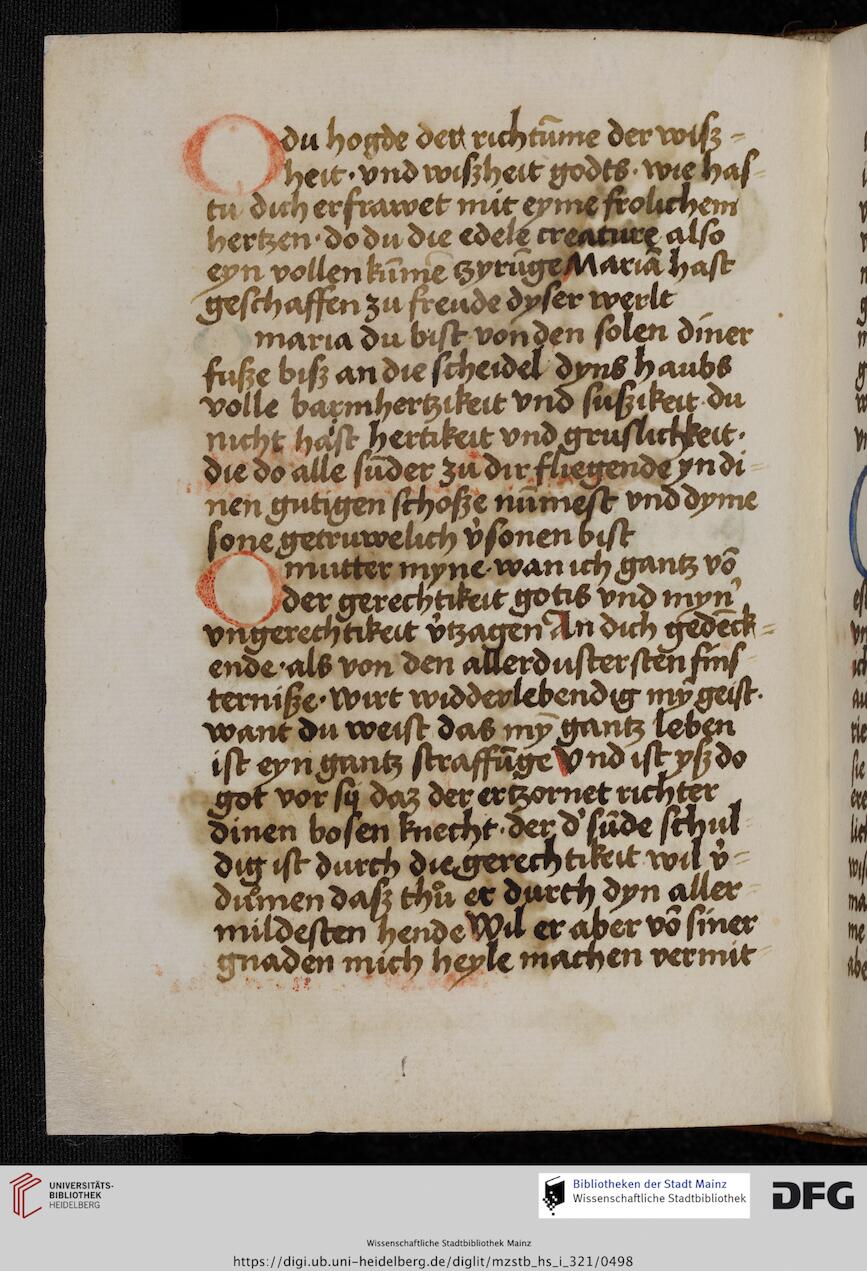 O du hogde der richtūme der wisz-
heit · vnd wiszheit godts · wie has-
tu dich erfrawet mit eyme frolichem
hertzen · do du die edele creature also
eyn vollenkūmē tzyrūge Mariā hast
geschaffen zu freude dyser werlt
O maria du bist von den solen diner
fusze bisz an die scheidel dyns haubs
volle barmhertzikeit vnd suszikeit · du
nicht hast hertikeit vnd gruslichkeit ·
die do alle sūder zu dir fliegende yn di-
nen gutigen schosze nūmest vnd dyme
sone getruwelich v̓sonen bist
O mutter myne · wan ich gantz vō
der gerechtikeit gotis vnd myn̓
vngerechtikeit v̓tzagen An dich gedēck-
ende · als von den allerdustersten fins-
ternisze · wirt widderlebendig mȳ geist ·
want du weist das mȳ gantz leben
ist eyn gantz straffūge Vnd ist ysz do
got vor sij daz der ertzornet richter
dinen bosen knecht · der d̓ sūde schul-
dig ist durch die gerechtikeit wil v̓-
duͦmen dasz thuͦ er durch dyn aller-
mildesten hende Wil er aber vō siner
gnaden mich heyle machen vermit-
UNIVERSITÄTS-
BIBLIOTHEK
HEIDELBERG
Bibliotheken der Stadt Mainz
Wissenschaftliche Stadtbibliothek
DFG
Wissenschaftliche Stadtbibliothek Mainz
https://digi.ub.uni-heidelberg.de/diglit/mzstb_hs_i_321/0498